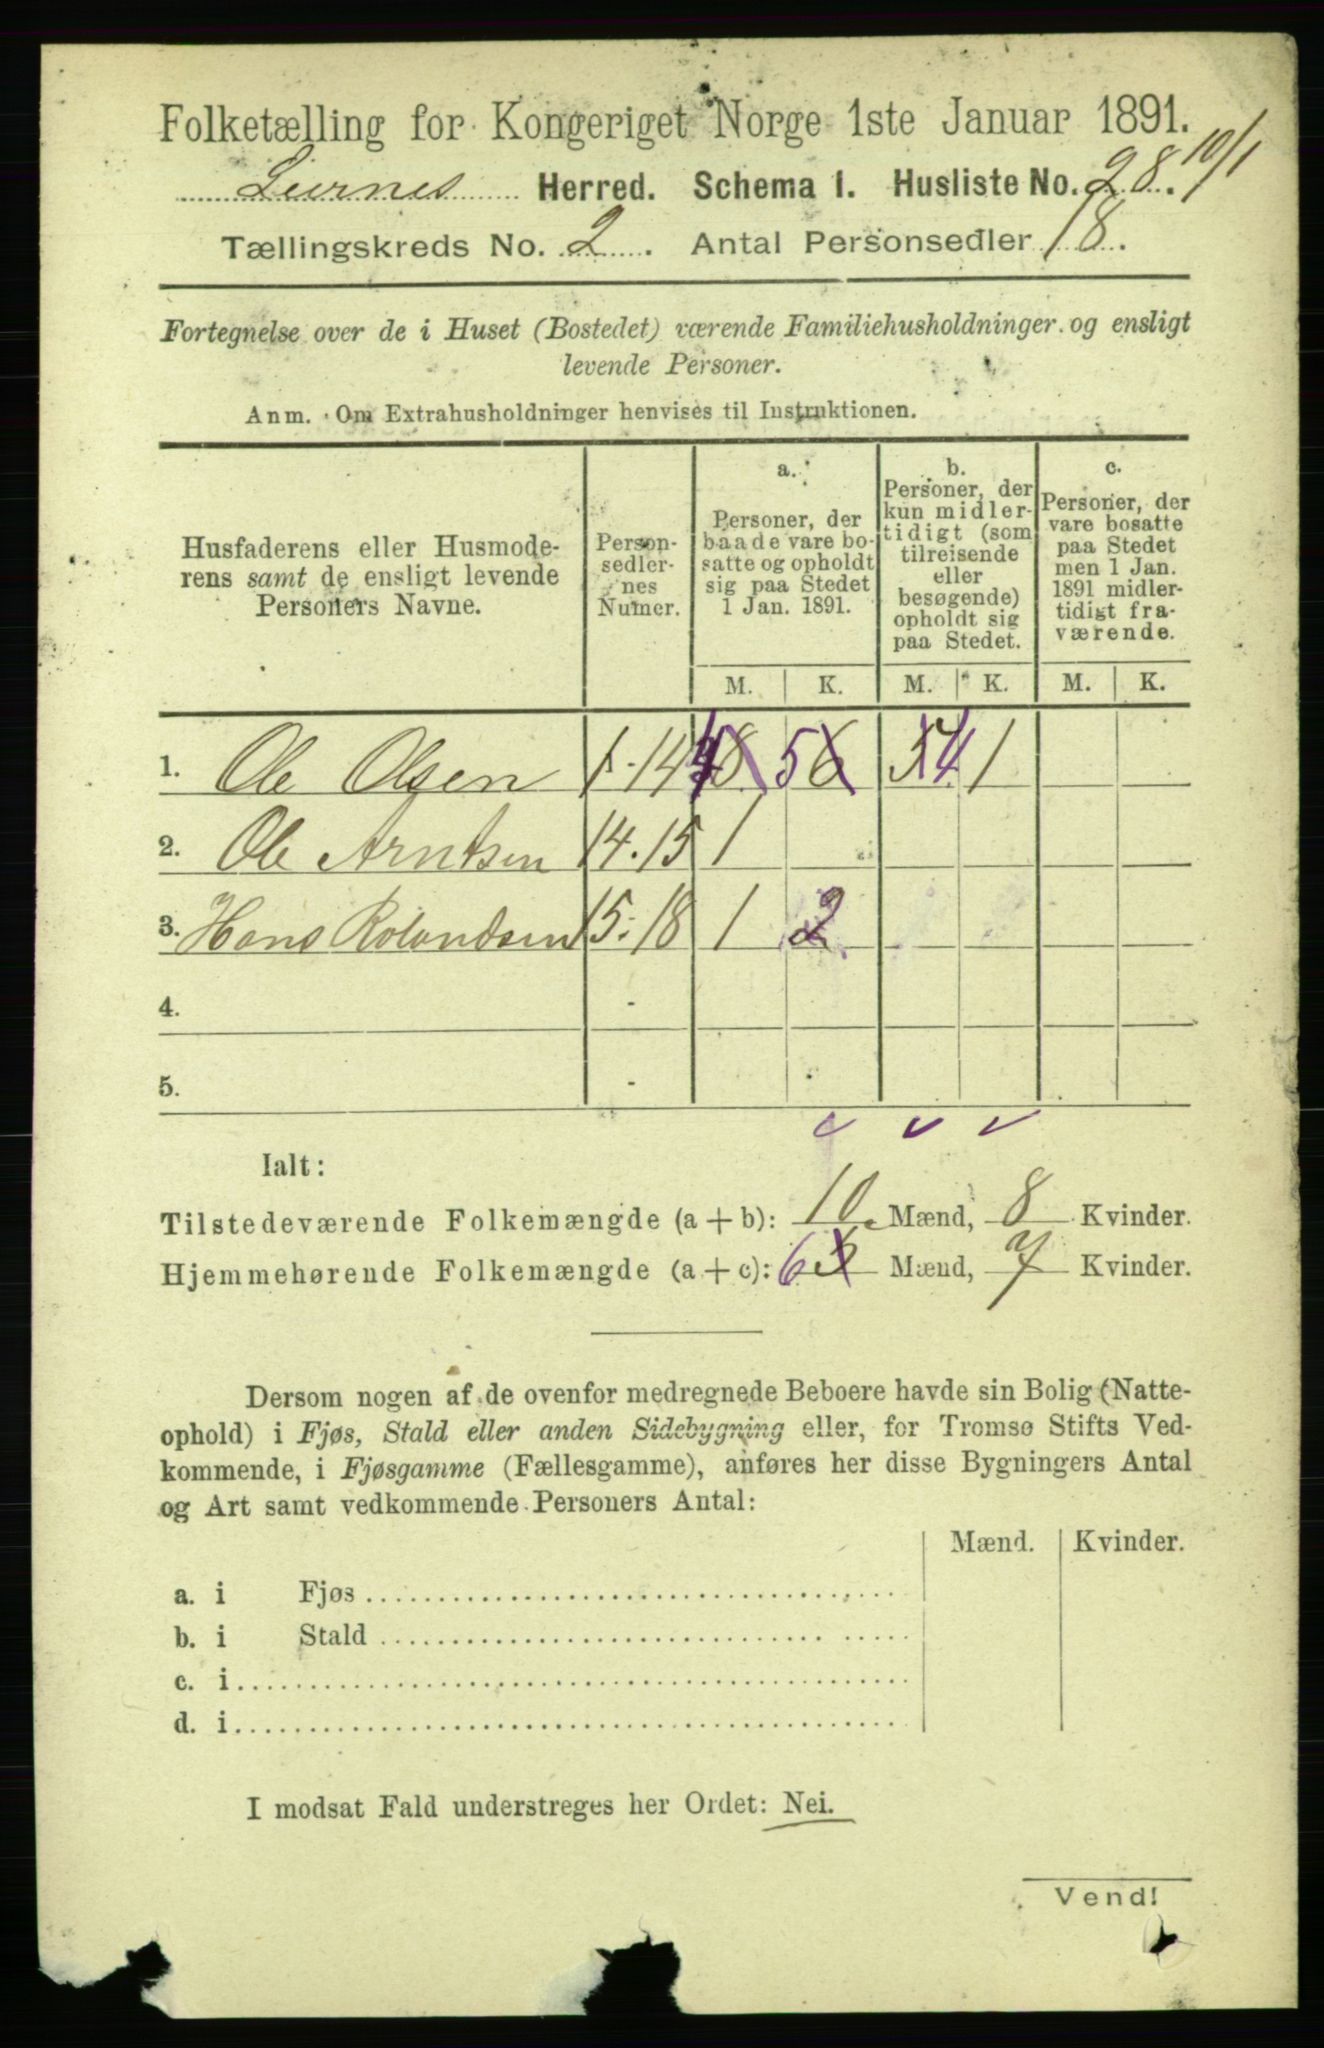 Folketælling for Kongeriget Norge 1ste Januar 1891.
Herred. Schema 1. Husliste No. 28. 10/1
Tællingskreds No. 2. Antal Personsedler 18.
Fortegnelse over de i Huset (Bostedet) værende Familiehusholdninger og ensligt
levende Personer.
Anm. Om Extrahusholdninger henvises til Instruktionen.
Husfaderens eller Husmode-
rens samt de ensligt levende
Personers Navne.
Person-
sedler-
nes
Numer.
a.
Personer, der
baade vare bo-
satte og opholdt
sig paa Stedet
1 Jan. 1891.
b.
Personer, der
kun midler-
tidigt (som
tilreisende
eller
besøgende)
opholdt sig
paa Stedet.
c.
Personer, der
vare bosatte
paa Stedet
men 1 Jan.
1891 midler-
tidigt fra-
værende.
M. K. M. K. M. K.
1. Ole Olsen 1-14 5 6 4 1
2. Ole Arntsen 14.15 1
3. Hans Rolandsen 15-18 1 2
4. -
5. -
Ialt:
Tilstedeværende Folkemængde (a + b): 10 Mænd, 8 Kvinder.
Hjemmehørende Folkemængde (a + c): 6 5 Mænd, 7 Kvinder.
Dersom nogen af de ovenfor medregnede Beboere havde sin Bolig (Natte-
ophold) i Fjøs, Stald eller anden Sidebygning eller, for Tromsø Stifts Ved-
kommende, i Fjøsgamme (Fællesgamme), anføres her disse Bygningers Antal
og Art samt vedkommende Personers Antal:
Mænd. Kvinder.
a. i Fjøs
b. i Stald
c. i
d. i
I modsat Fald understreges her Ordet: Nei.
Vend!